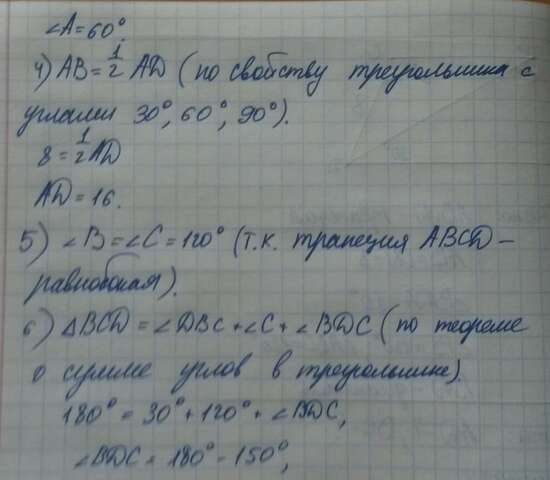 ∠A=60°.
4) AB=1/2 AD (по свойству треугольника с
углами 30°, 60°, 90°).
8=1/2AD
AD=16.
5) ∠B=∠C=120° (т.к. трапеция ABCD –
равнобокая).
6) △BCD=∠DBC+∠C+∠BDC (по теореме
о сумме углов в треугольнике).
180°=30°+120°+∠BDC,
∠BDC=180°-150°,